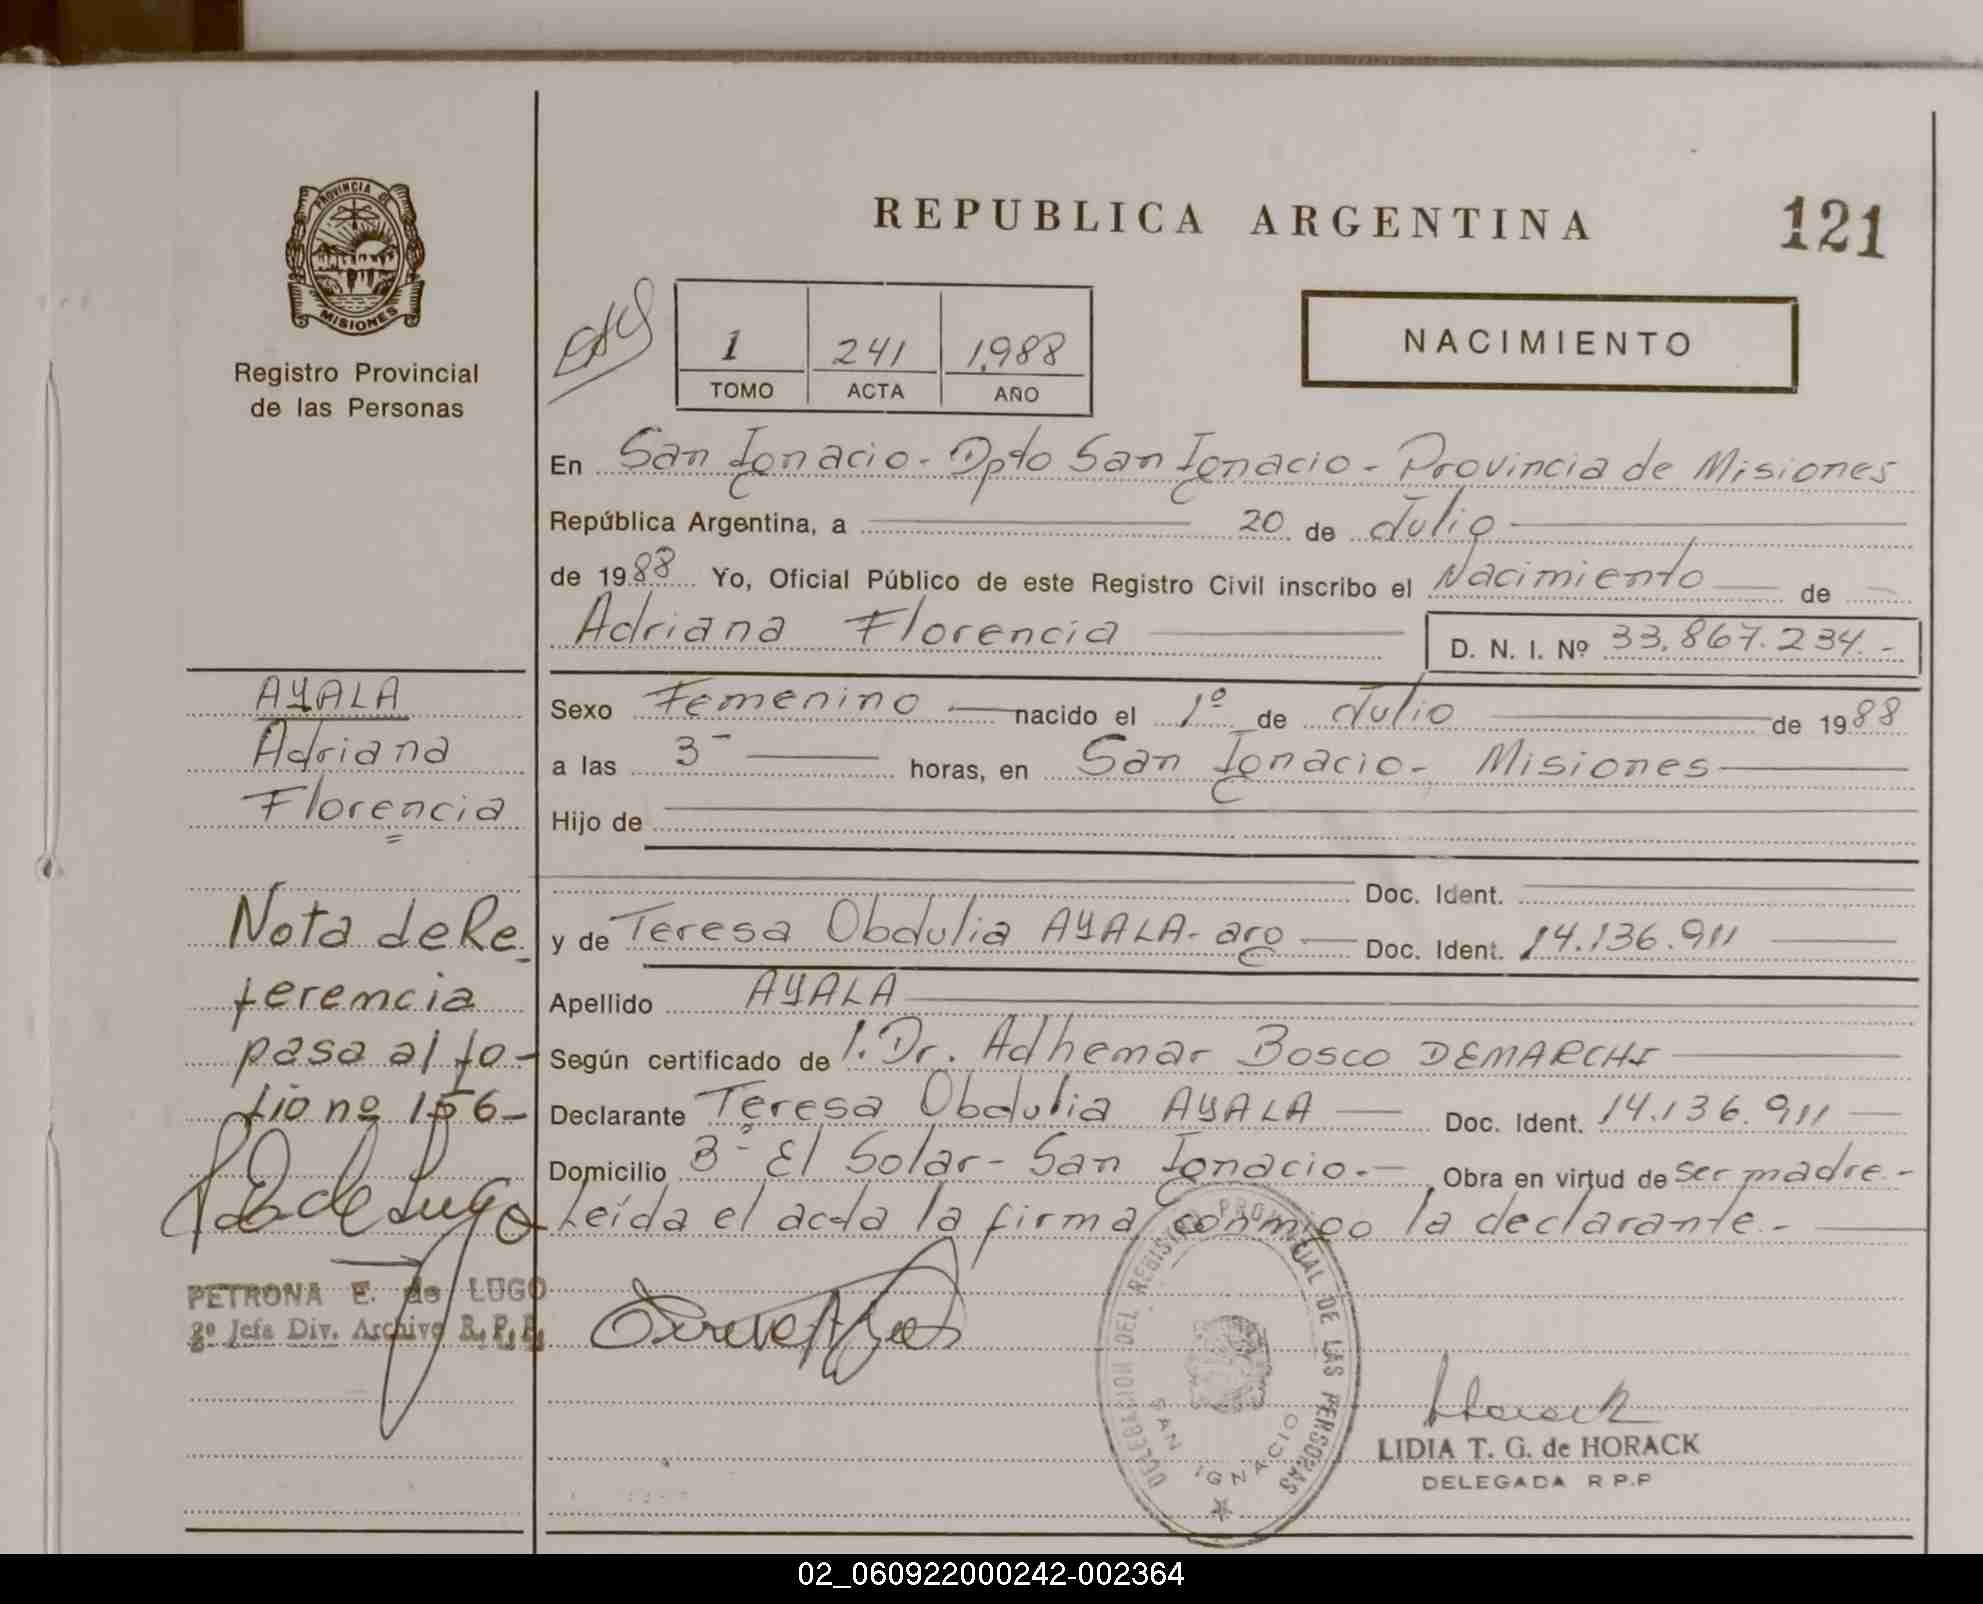 PROVINCIA DE
MISIONES
Registro Provincial
de las Personas
REPUBLICA ARGENTINA
121
1 241 1.988
TOMO ACTA AÑO
NACIMIENTO
En San Ignacio - Dpto San Ignacio - Provincia de Misiones
República Argentina, a 20 de Julio
de 1988 Yo, Oficial Público de este Registro Civil inscribo el Nacimiento de
Adriana Florencia D. N. I. Nº 33.867.234.-
Sexo Femenino nacido el 1º de Julio de 1988
a las 3 horas, en San Ignacio - Misiones
Hijo de
Doc. Ident.
y de Teresa Obdulia AYALA - arg Doc. Ident. 14.136.911
Apellido AYALA
Según certificado de 1. Dr. Adhemar Bosco DEMARCHI
Declarante Teresa Obdulia AYALA Doc. Ident. 14.136.911
Domicilio Bº El Solar - San Ignacio.- Obra en virtud de ser madre.-
Leída el acta la firma conmigo la declarante.-
AYALA
Adriana
Florencia
Nota de Re-
ferencia
pasa al fo-
lio nº 156-
PETRONA E. de LUGO
2º Jefa Div. Archivo R.P.P.
DELEGACION DEL REGISTRO PROVINCIAL DE LAS PERSONAS
SAN IGNACIO
Horack
LIDIA T. G. de HORACK
DELEGADA R P.P
02_060922000242-002364